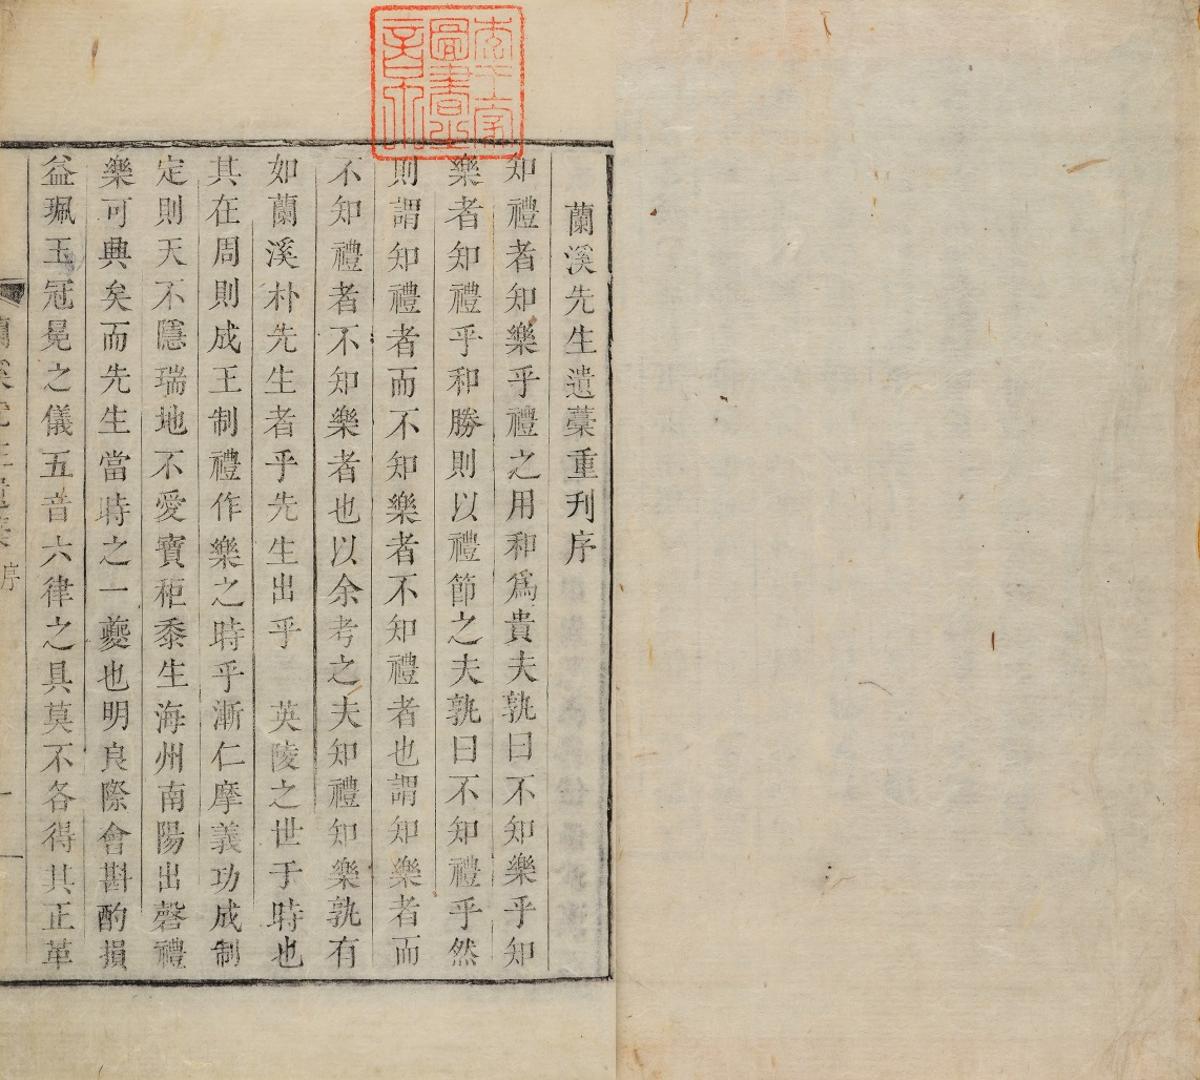 蘭溪先生遺藁重刊序
知禮者知樂乎禮之用和爲貴夫孰曰不知樂乎知
樂者知禮乎和勝則以禮節之夫孰曰不知禮乎然
則謂知禮者而不知樂者不知禮者也謂知樂者而
不知禮者不知樂者也以余考之夫知禮知樂孰有
如蘭溪朴先生者乎先生出乎 英陵之世于時也
其在周則成王制禮作樂之時乎漸仁摩義功成制
定則天不隱瑞地不愛寶秬黍生海州南陽出磬禮
樂可典矣而先生當時之一夔也明良際會斟酌損
益珮玉冠冕之儀五音六律之具莫不各得其正革
蘭溪先生遺藁 序 一
圖書